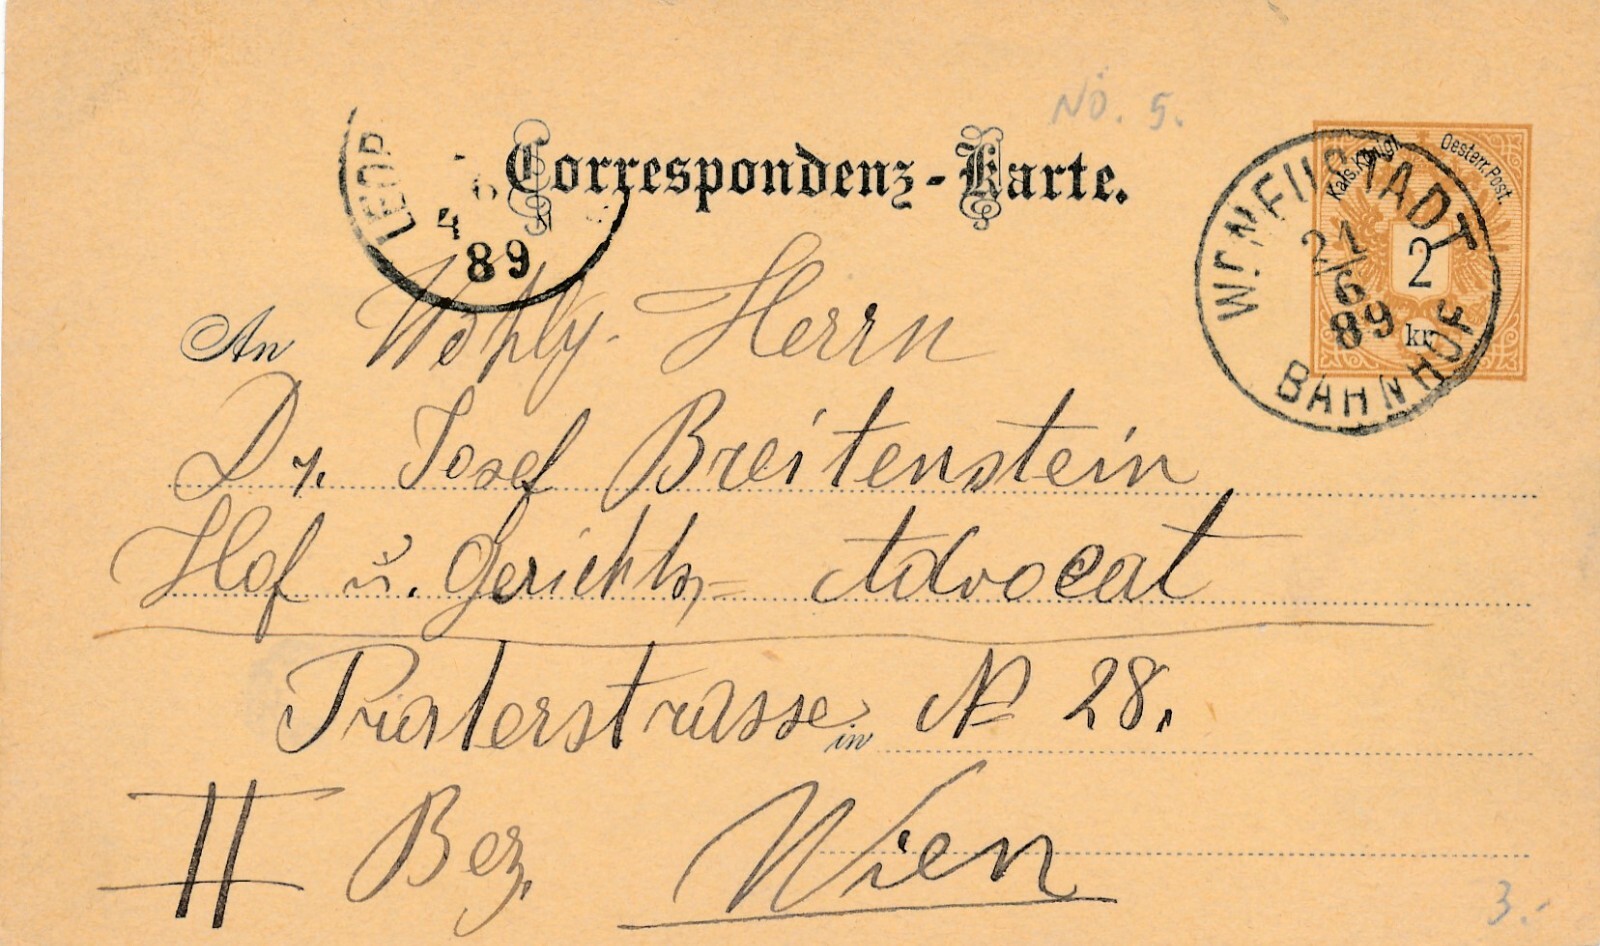 NÖ. 5.
Correspondenz-Karte.
Kais. Königl. Oesterr. Post.
2
kr
WR NEUSTADT
21/6
89
BAHNHOF
LEOP
6
4
89
An Wohlg. Herrn
Dr. Josef Breitenstein
Hof u. Gerichts- Advocat
Praterstrasse in № 28.
II Bez. Wien
3.-